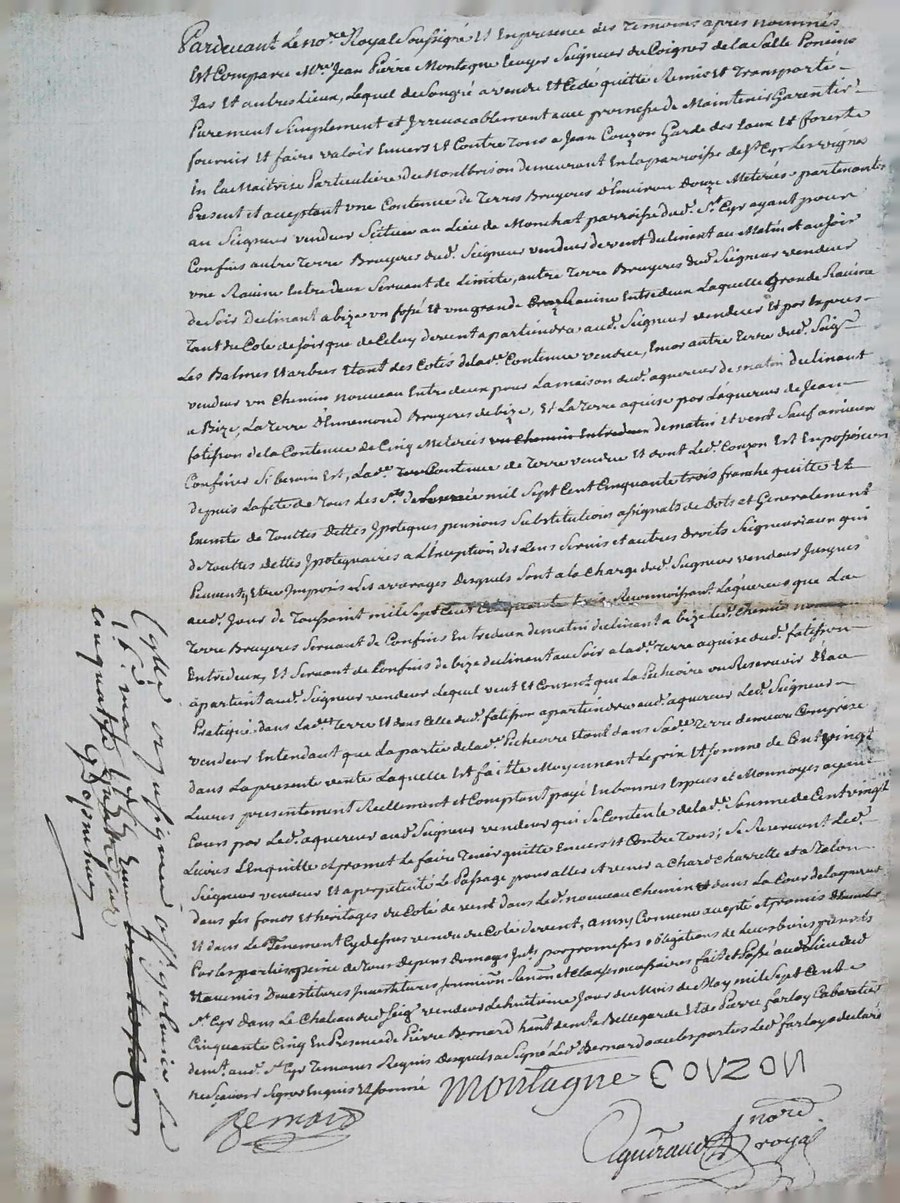 Pardevant Le no.re Royal Soussigné Et En presence des Temoins apres nommés
Est Comparu M.re Jean Pierre Montagne Ecuyer Seigneur de Poignes de la Salle Poncins
Jas Et autres Lieux, Lequel de Songré a vendu Et Cedé quitté Remis et Transporté
Purement Simplement et Irrevocablement avec promesse de Maintenir Garentir
fournir Et faire valoir Envers Et Contre Tous a Jean Couzon Garde des Eaux Et forests
En La Maitrise Particuliere de Montbrison demeurant En la parroisse de S.t Cyr Les vignes
Present et acceptant vne Contenue de Terres Bruyeres d'Environ Douze Meterées partenantes
au Seigneur vendeur Scituee au Lieu de Monchat parroisse dud. S.t Cyr ayant pour
Confins autre Terre Bruyeres dud. Seigneur vendeur de vent declinant au Matin et au soir
vne Ravine Entredeux Servant de Limitte, autre Terre Bruyeres dud Seigneur vendeur
de Soir Declinant a bize vn fossé Et vn grande Ravine Entredeux Laquelle Grande Ravine
Tant du Cote de soir que de Celuy de vent apartiendra aud. Seigneur vendeur Et par Expres
Les Balmes Et arbres Etant des Cotés de lad. Contenue vendue, Encor autre Terre dud. Seig.r
vendeur vn Chemin nouveau Entredeux pour La maison dud. aquereur de matin declinant
a Bize, La Terre d'Ennemond Bruyeres de bize, Et La Terre aquise par L'aquereur de Jean
fatisson de la Contenue de Cinq Meterées vn Chemin Entredeux de matin et vent Sauf a mieux
Confiner Si besoin Est, Lad. Contenue de Terre vendue Et dont Led. Couzon Est En possession
depuis La fete de Tous les S.ts de L'année mil Sept Cent Cinquante trois franche quitte Et
Exemte de Touttes Dettes Ipoteques pensions Substitutions assignats de Dots et Generalement
de Touttes Dettes Ipotequaires a L'Exeption des Cens Servis et autres Droits Seigneuriaux qui
Peuvent y Etre Imposés Les arrerages Desquels Sont a la Charge dud. Seigneur vendeur Jusques
aud. Jour de Toussaint mil Sept Cent Cinquante trois Reconnoissant L'aquereur que La
Terre Bruyeres Servant de Confins Entredeux de matin declinant a bize led. Chemin nouveau
Entredeux, Et Servant de Confins de bize declinant au Soir a lad. Terre aquise dud. fatisson
apartient aud. Seigneur vendeur Lequel veut Et Consent que La Pecherie ou Reservoir d'Eau
Pratiqué dans Lad. Terre Et dans Celle dud. fatisson apartiendra aud. aquereur Led. Seigneur
vendeur Entendant que La partie de lad. Pecherie Etant dans Sad. Terre demeure Comprise
dans La presente vente Laquelle Est faitte Moyennant Le prix Et Somme de Cent vingt
Livres presentement Reellement et Comptant payé En bonnes Especes et Monnoyes ayant
Cours par Led. aquereur aud. Seigneur vendeur qui Se Contente de lad. Somme de Cent vingt
Livres L'En quitte et promet Le faire Tenir quitte Envers Et Contre Tous; Se Reservant Led.
Seigneur vendeur Et a perpetuité Le Passage pour aller et venir a Char Charrette et a Talon
dans ses fonds et héritages du Coté de vent dans Led. nouveau Chemin et dans La Cour de laquereur
Et dans Le Tenement Cy dessus vendu du Coté de vent, ainsy Convenu accepté et promis
Par les parties a peine de Tous Depens Domages Int. par promesses obligations de Leurs biens
Et avec mis Devestitures Investitures, Soumission Renon. et Clauses necessaires fait et Passé au Lieu dud
S.t Cyr dans Le Chateau dud. Seig.r vendeur Le huitieme Jour du Mois de May mil Sept Cent
Cinquante Cinq En Presence de Pierre Bernard hant demt. a Bellegarde Et de Pierre farlay Cabaretier
demt. aud. S.t Cyr Temoins Requis Desquels a Signé Led. Bernard avec les parties Led. farlay a declaré
ne sçavoir Signer Enquis Et Sommé
Montagne Couzon
Bernard
no.re royal